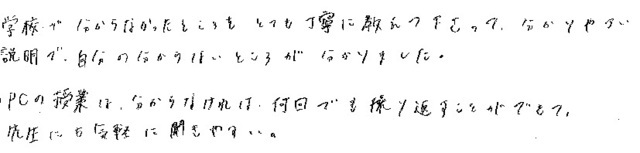 学校で分からなかったところもとても丁寧に教えて下さって、分かりやすい
説明で、自分の分からないところが分かりました。
PCの授業は、分からなければ、何回でも繰り返すことができて、
先生にも気軽に聞きやすい。